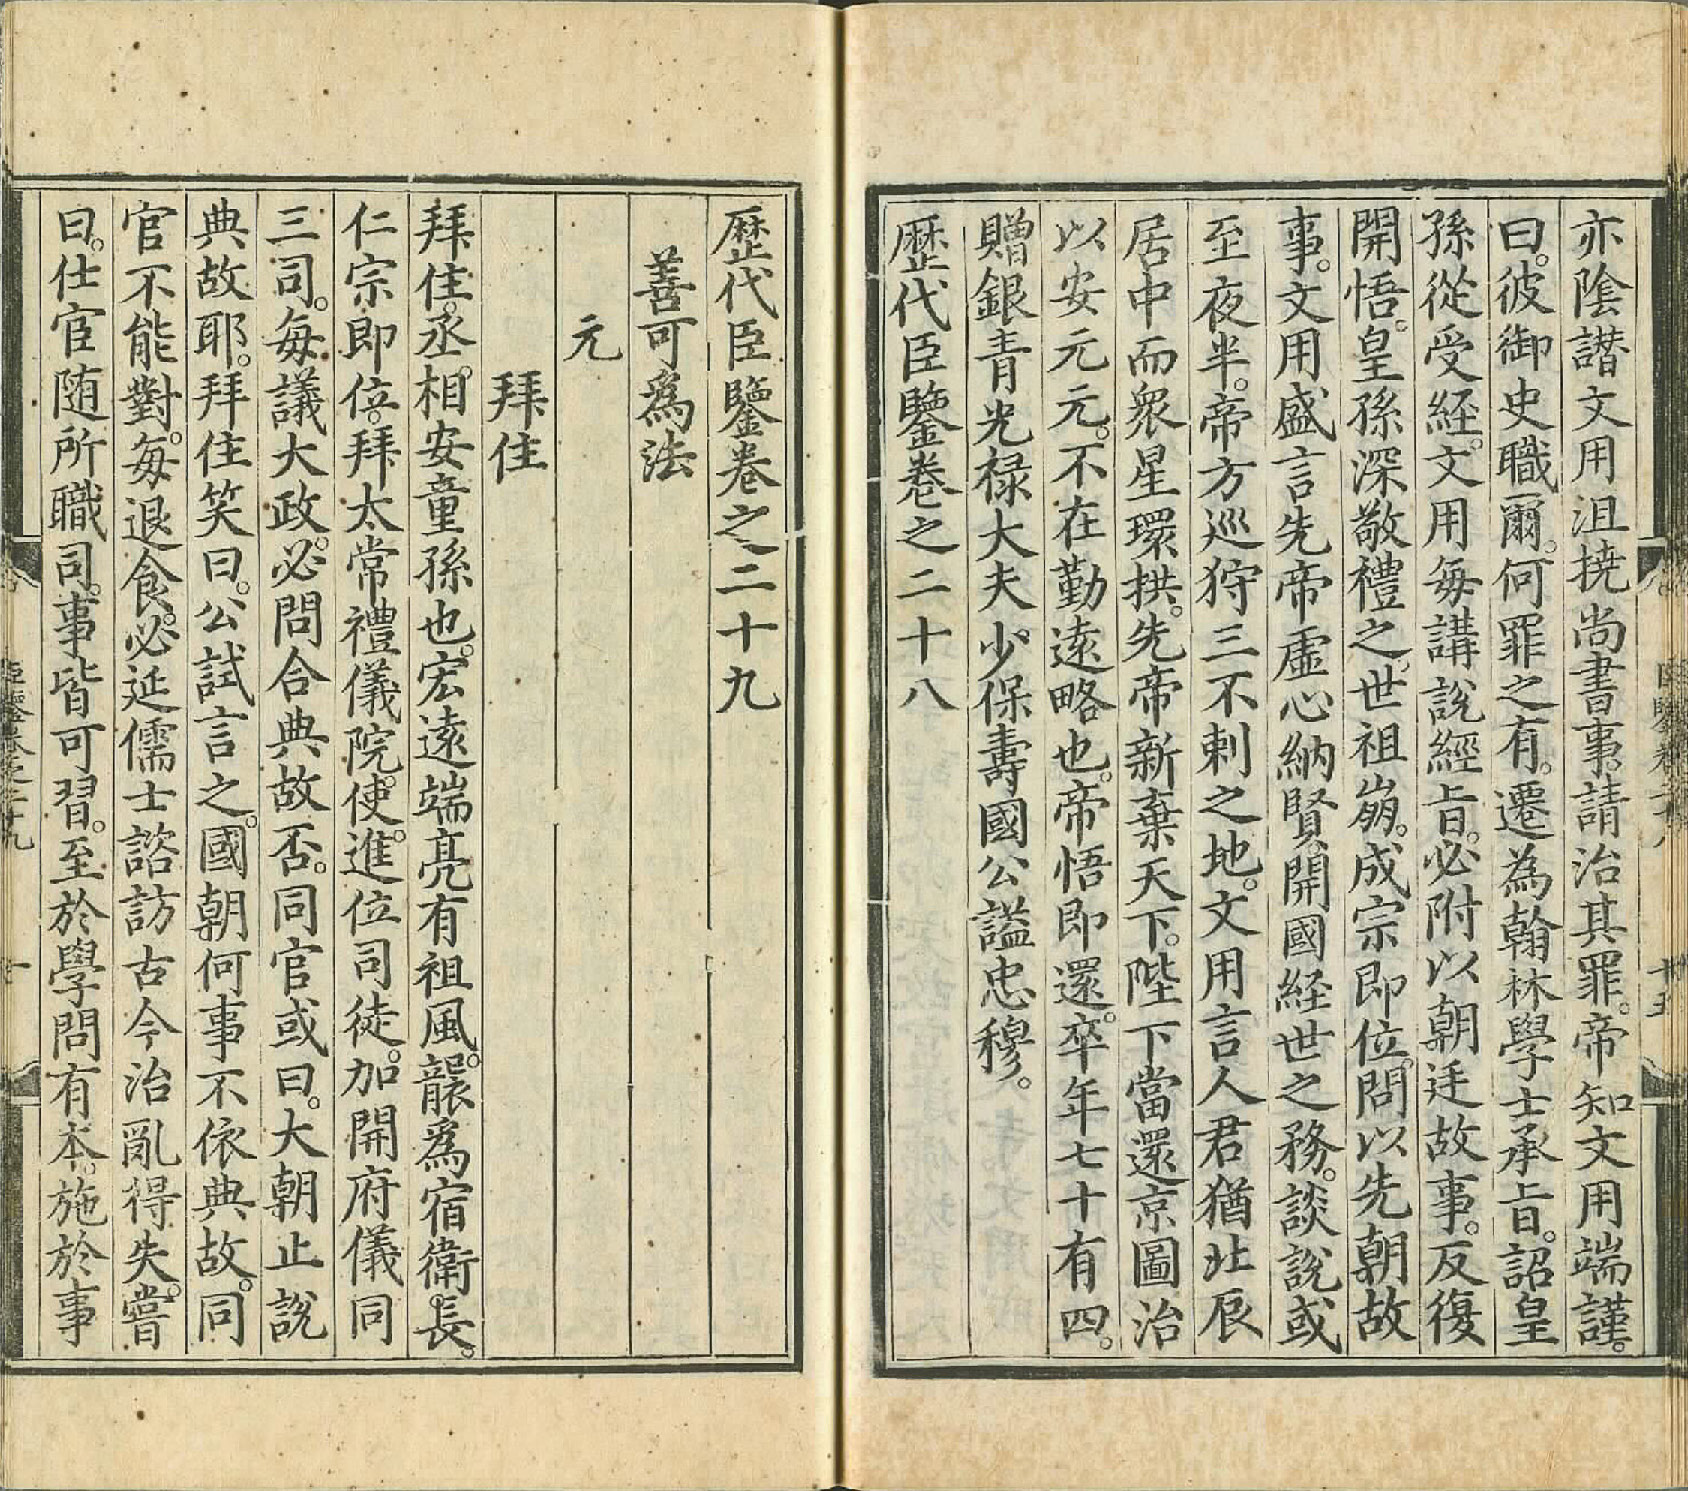 亦陰譛文用沮撓尚書事請治其罪。帝知文用端謹。
曰。彼御史職爾。何罪之有。遷為翰林學士承旨。詔皇
孫從受經。文用每講說經旨。必附以朝廷故事。反復
開悟。皇孫深敬禮之。世祖崩。成宗即位。問以先朝故
事。文用盛言先帝虛心納賢。開國経世之務。談說或
至夜半。帝方巡狩三不剌之地。文用言人君猶北辰
居中而衆星環拱。先帝新棄天下。陛下當還京圖治
以安元元。不在勤遠略也。帝悟即還。卒年七十有四。
贈銀青光禄大夫少保壽國公謚忠穆。
歷代臣鑒卷之二十八
歷代臣鑒卷之二十九
善可為法
元
拜住
拜住。丞相安童孫也。宏遠端亮有祖風。襲為宿衛長。
仁宗即位。拜太常禮儀院使。進位司徒。加開府儀同
三司。每議大政。必問合典故否。同官或曰。大朝止說
典故耶。拜住笑曰。公試言之。國朝何事不依典故。同
官不能對。每退食。必延儒士諮訪古今治亂得失。嘗
曰。仕宦随所職司。事皆可習。至於學問有本。施於事
臣鑒卷之二十九
一